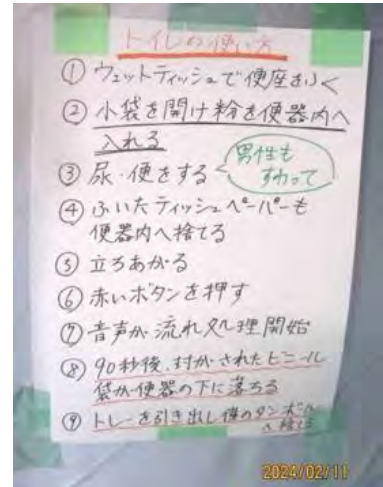 トイレの使い方
① ウェットティッシュで便座をふく
② 小袋を開け粉を便器内へ
入れる
③ 尿・便をする
男性も
すわって
④ ふいたティッシュペーパーも
便器内へ捨てる
⑤ 立ちあがる
⑥ 赤いボタンを押す
⑦ 音声が流れ処理開始
⑧ 90秒後、封がされたビニール
袋が便器の下に落ちる
⑨ トレーを引き出し横のダンボール
へ捨てる
2024/02/11